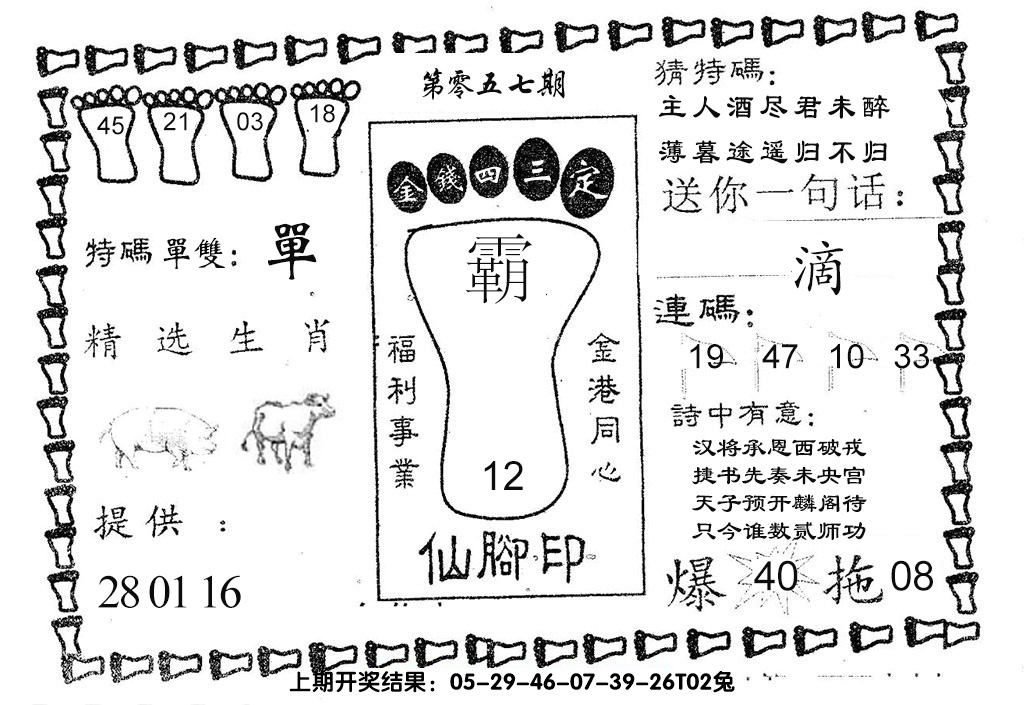 第零五七期
45 21 03 18
特碼單雙: 單
精选生肖
提供:
28 01 16
金錢四三定
霸
福利事業
金港同心
12
仙腳印
猜特碼:
主人酒尽君未醉
薄暮途遥归不归
送你一句话:
滴
連碼:
19 47 10 33
詩中有意:
汉将承恩西破戎
捷书先奏未央宫
天子预开麟阁待
只今谁数贰师功
爆 40 拖 08
上期开奖结果：05-29-46-07-39-26T02兔